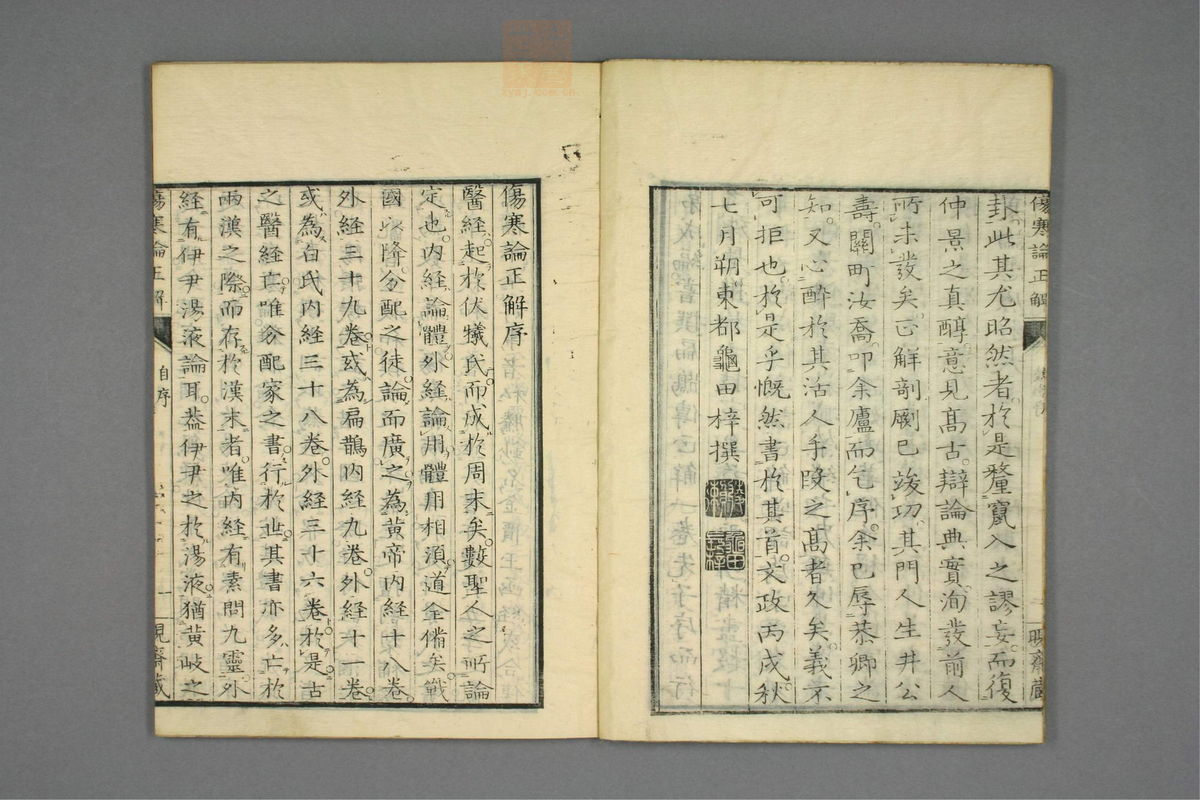 卦此其尤昭然者於是釐竄入之謬妄而復
仲景之真醇意見髙古辯論典實洵發前人
所未發矣正解剞劂已竣功其門人生井公
壽關町汝喬叩余廬而乞序余已辱恭卿之
知又心醉於其活人手段之髙者久矣義不
可拒也於是乎慨然書於其首文政丙戌秋
七月朔東都龜田梓撰
龜田
長梓
傷寒論正解
傷寒論正解序
醫經起於伏犠氏而成於周末矣數聖人之所論
定也内経論體外経論用體用相須道全備矣戰
國以降分配之徒論而廣之為黄帝内経十八卷
外経三十九卷或為扁鵲内経九卷外経十一卷
或為白氏内経三十八卷外経三十六卷於是古
之醫経亡唯分配家之書行於世其書亦多亡於
兩漢之際而存於漢末者唯内経有素問九靈外
経有伊尹湯液論耳葢伊尹之於湯液猶黄岐之
傷寒論正解
自序
一